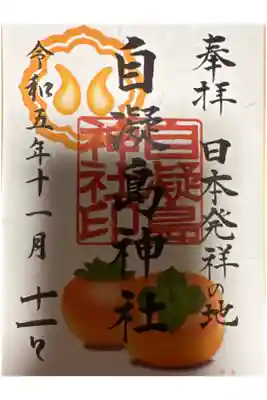 奉拝
日本発祥の地
自凝島神社
自凝島
神社印
令和五年十一月十一日